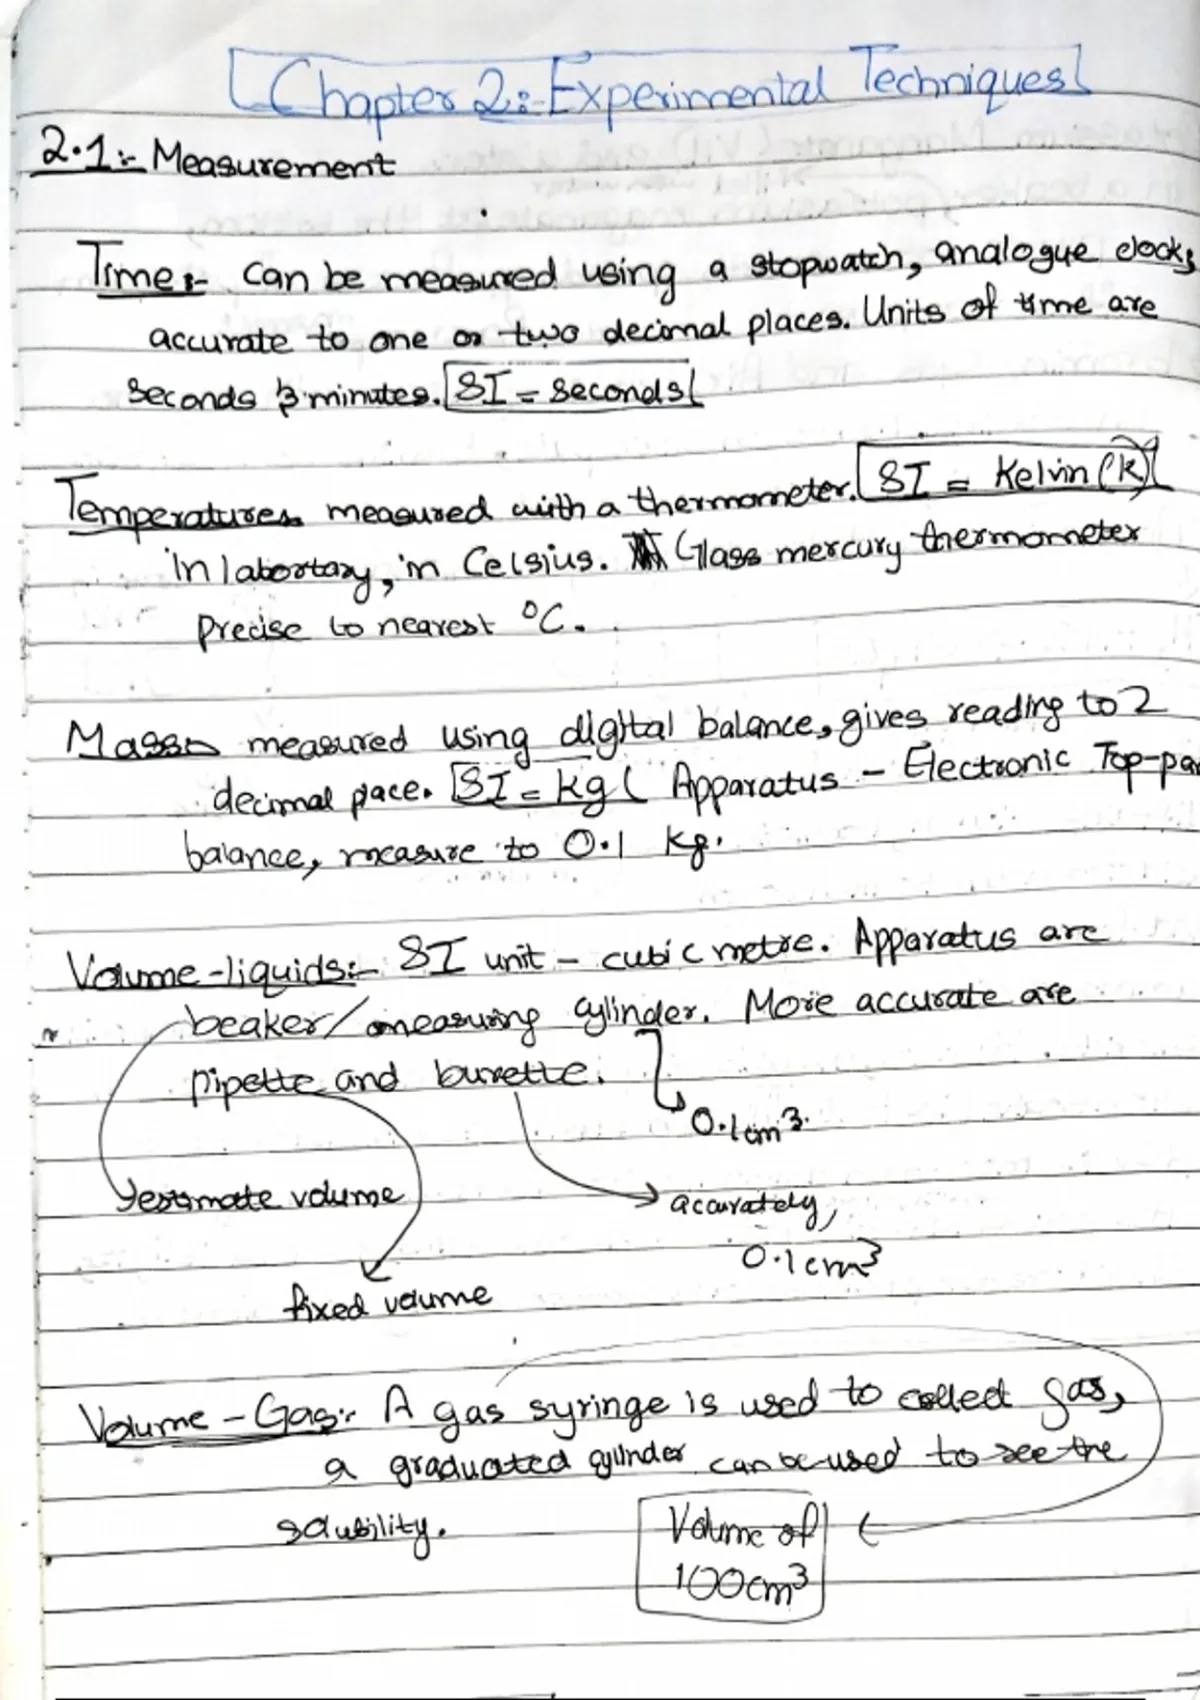 Chapter 2:- Experimental Techniques
2.1:- Measurement
Time:- Can be measured using a stopwatch, analogue clock,
accurate to one or two decimal places. Units of time are
Seconds & minutes. SI = seconds
Temperature:- measured with a thermometer. SI = Kelvin (K)
in labortary, in Celsius. Glass mercury thermometer
Precise to nearest °C.
Mass:- measured using digital balance, gives reading to 2
decimal place. SI = kg Apparatus - Electronic Top-pan
balance, measure to 0.1 kg.
Volume-liquids:- SI unit - cubic metre. Apparatus are
beaker/measuring cylinder. More accurate are
pipette and burette.
0.1cm³.
estimate volume
accurately,
0.1cm³
fixed volume
Volume - Gas:- A gas syringe is used to collect gas,
a graduated cylinder can be used to see the
solubility.
Volume of
100cm³